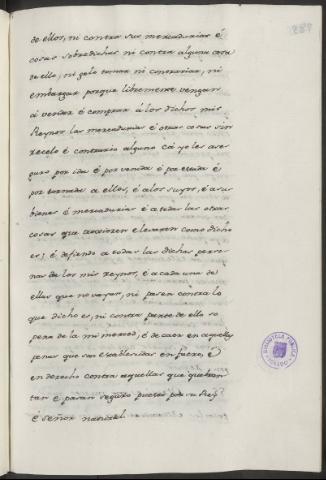 de ellos, ni contra sus mercadurias é
cosas sobredichas ni contra alguna cosa
de ello, ni gelo tomar ni contrariar, ni
embargar porque libremente vengan
á vender é comprar á los dichos mis
Reynos las mercadurias é otras cosas sin
recelo é contrario alguno cá yo les ase-
guro por ida é por venida é por estada é
por tornada a ellos, é a los suyos, é a sus
bienes é mercadurias é a todas las otras
cosas que traxieren e levaren como dicho
es; é defiendo a todas las dichas perso-
nas de los mis reynos, é a cada una de
ellas que no vayan, ni pasen contra lo
que dicho es, ni contra parte de ello so
pena de la mi merced, é de caer en aquellas
penas que son establecidas en fuero, é
en derecho contra aquellos que quebran-
tan é pasan seguro puesto por su Rey
é señor natural.